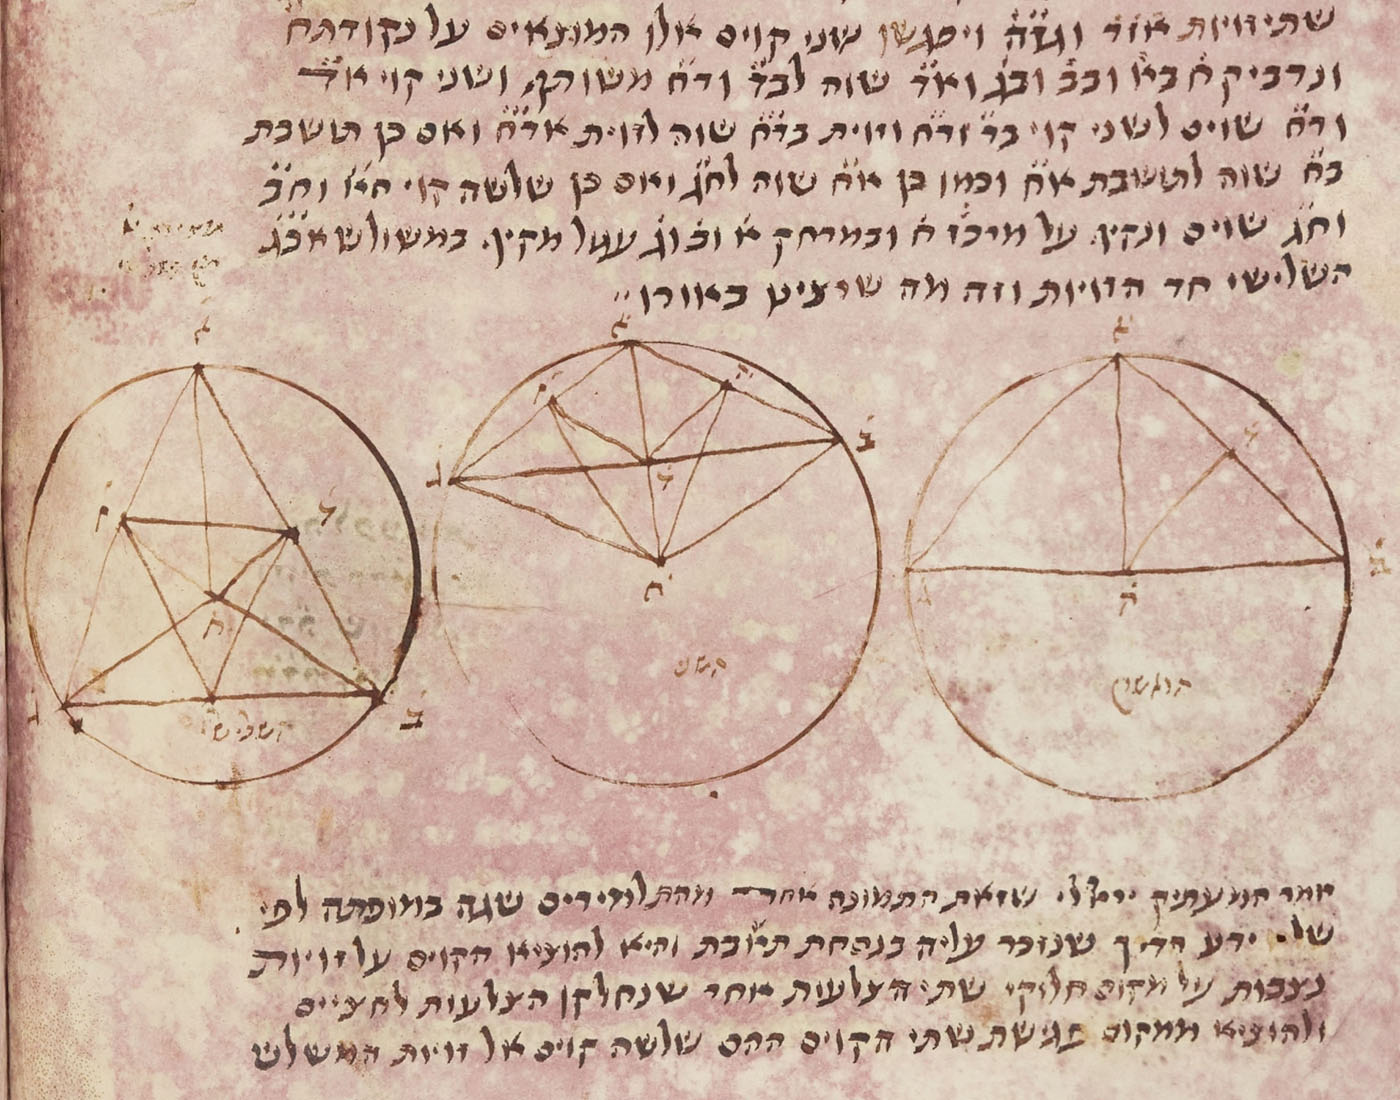 שתי זויות אזד וגזה ויפגשו שני קוים אלו המוצאים על נקודת ח
ונדביק ח בא ובב ובג ואד שוה לבד ודח משותף ושני קוי אד
ודח שוים לשני קוי בד ודח וזוית בדח שוה לזוית אדח ואם כן תושבת
בח שוה לתושבת אח וכמו כן אח שוה לחג ואם כן שלשה קוי חא וחב
וחג שוים ונקיף על מרכז ח ובמרחק א וב וג עגול מקיף במשולש אבג
השלישי חד הזויות וזה מה שרצינו באורו
א
א
א
ב
ג
ד
ח
ב
ג
ד
ח
ב
ג
ה
ד
השני
הראשון
השלישי
אמר המעתיק יראה לי שזאת התמונה אחד מהתלמידים שגה במופתה לפי
שלא ידע הדרך שנזכר עליה בנסחת תאבת והיא להוציא הקוים על זויות
נצבות על מקום חלוקי שתי הצלעות אחר שנחלקו הצלעות לחציים
ולהוציא ממקום פגישת שתי הקוים ההם שלשה קוים אל זויות המשלש